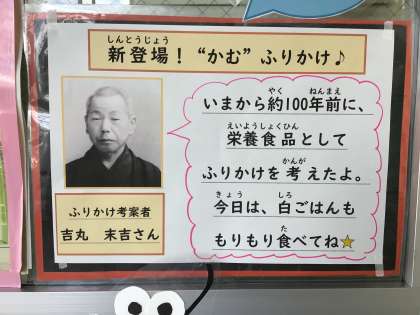 しんとうじょう
新登場！“かむ”ふりかけ♪
やく ねんまえ
いまから約100年前に、
えいようしょくひん
栄養食品として
かんが
ふりかけを考えたよ。
きょう しろ
今日は、白ごはんも
た
もりもり食べてね
ふりかけ考案者
吉丸 末吉さん